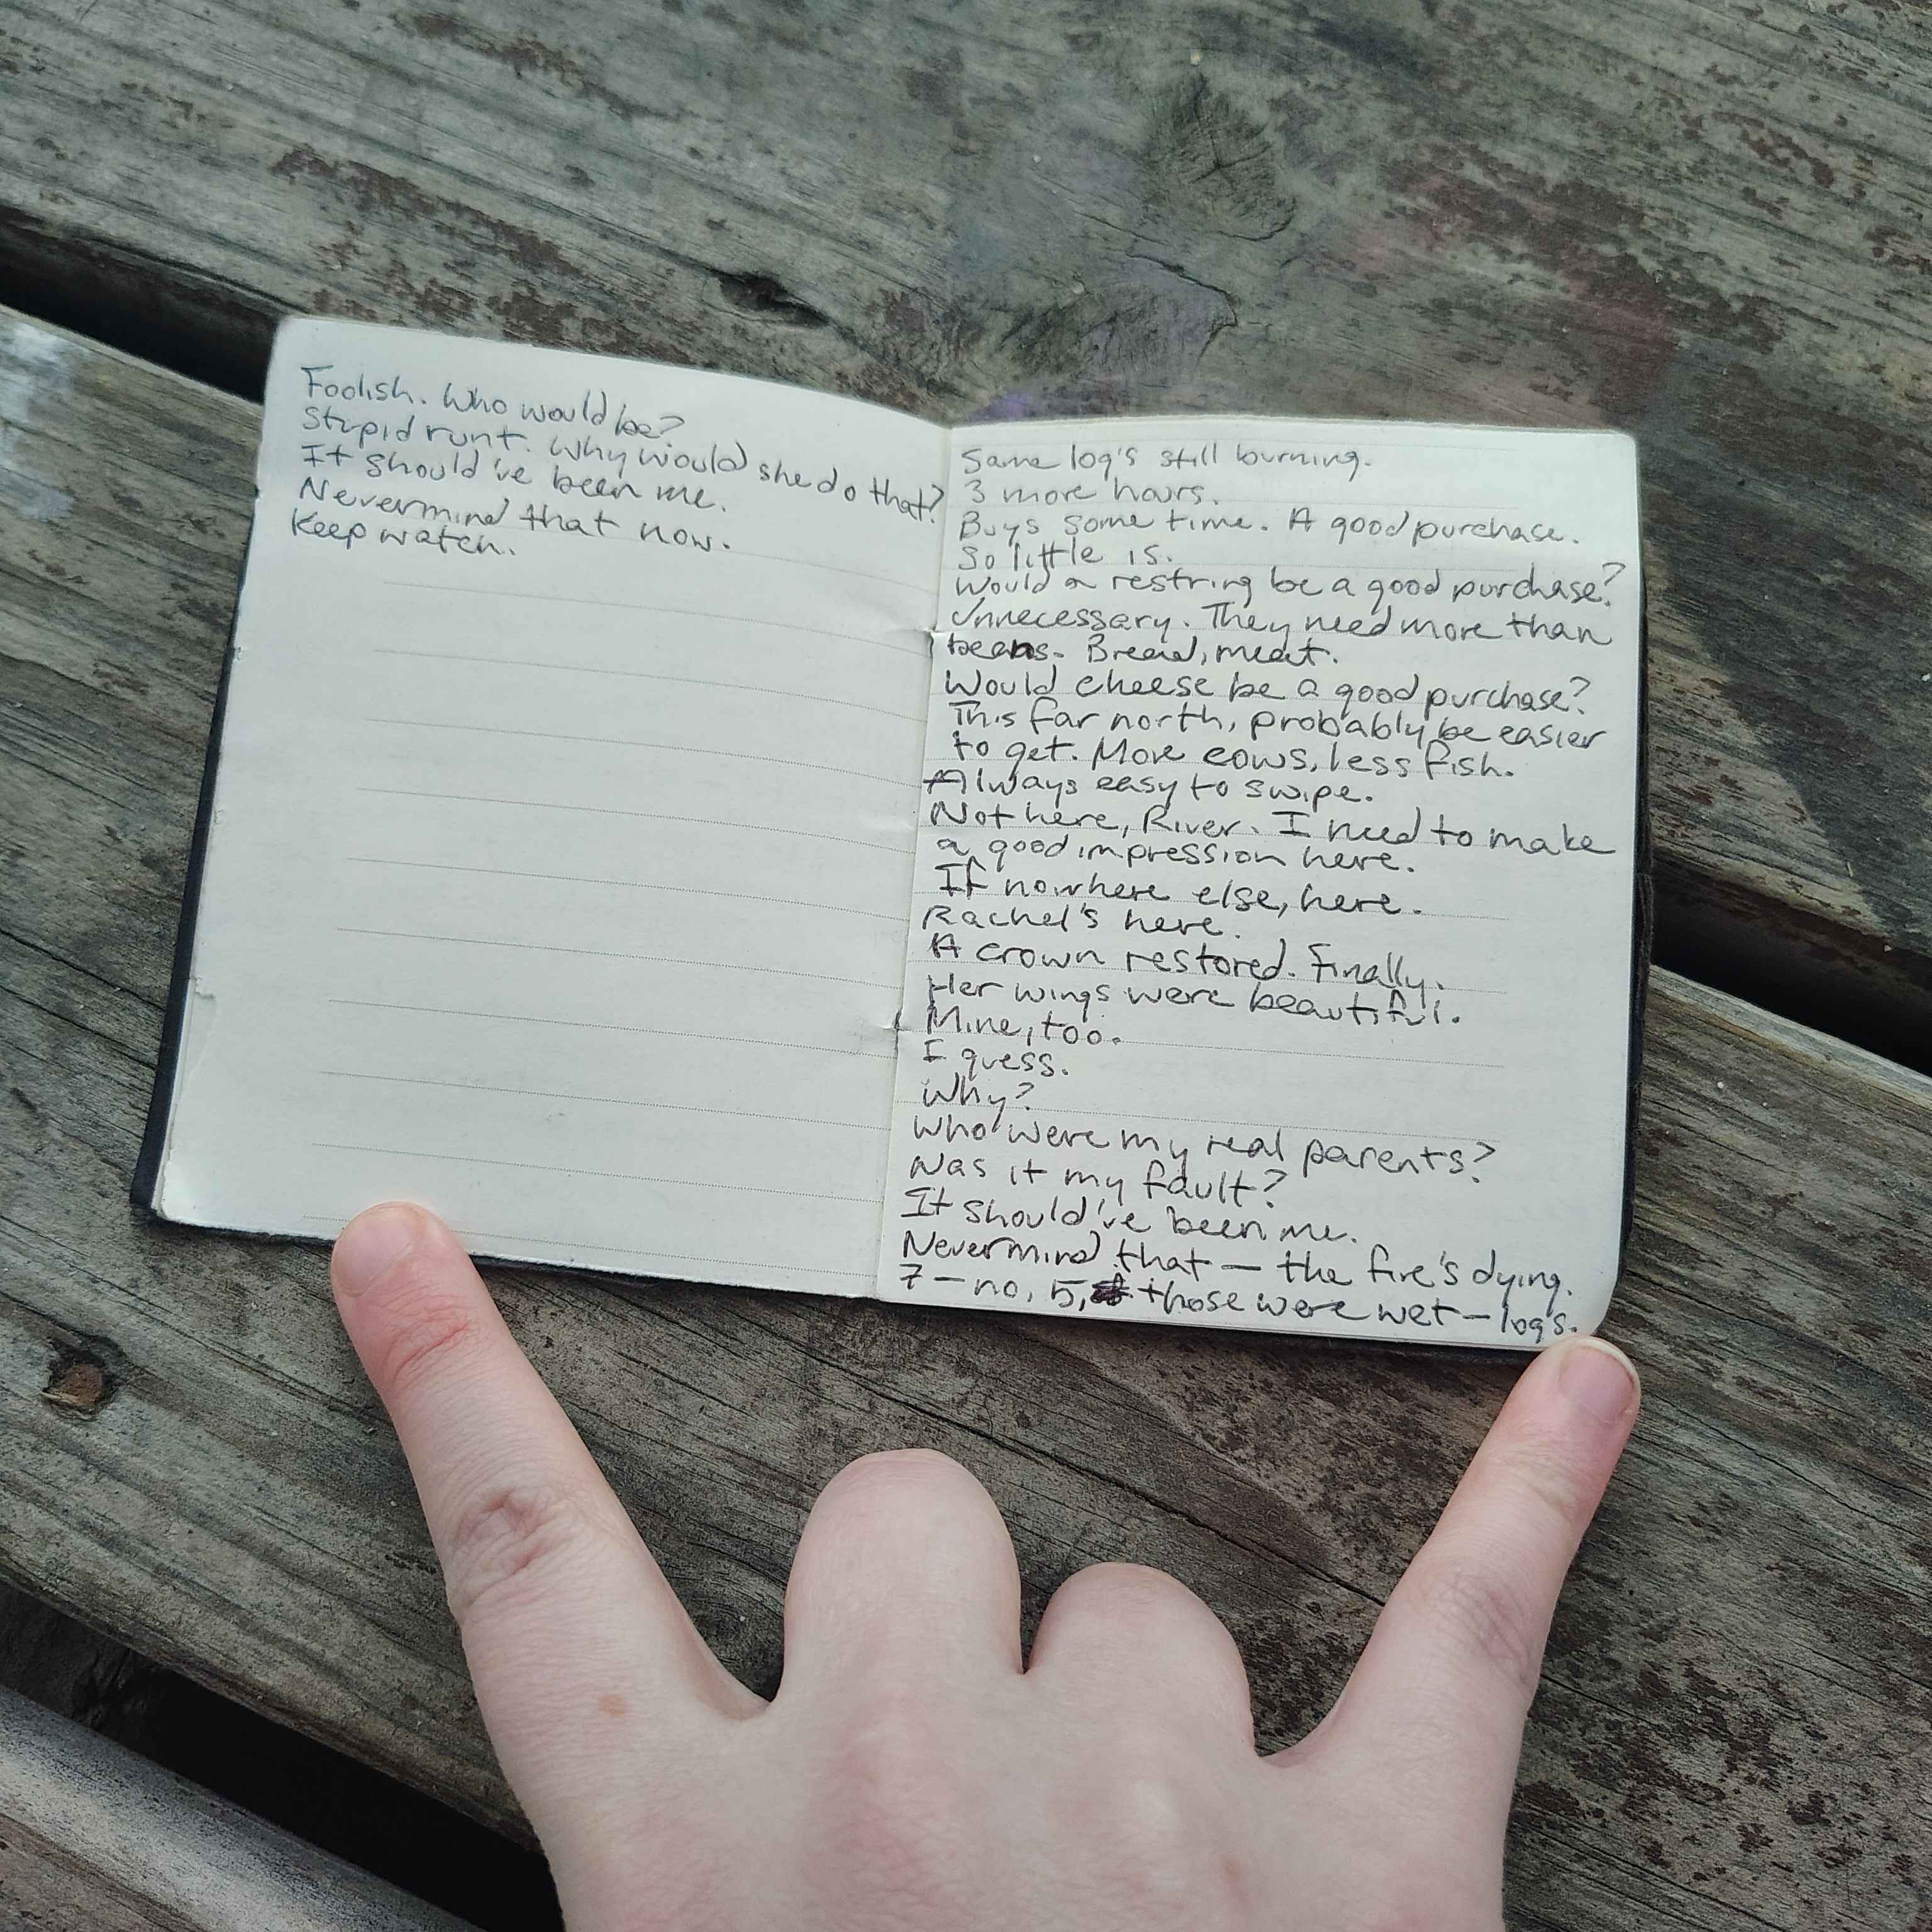 Foolish. Who would be?
Stupid runt. Why would she do that?
It should've been me.
Nevermind that now.
Keep watch.
Same log's still burning.
3 more hours.
Buys some time. A good purchase.
So little is.
Would a restring be a good purchase?
Unnecessary. They need more than
beans. Bread, meat.
Would cheese be a good purchase?
This far north, probably be easier
to get. More cows, less fish.
Always easy to swipe.
Not here, River. I need to make
a good impression here.
If nowhere else, here.
Rachel's here.
A crown restored. Finally.
Her wings were beautiful.
Mine, too.
I guess.
Why?
Who were my real parents?
Was it my fault?
It should've been me.
Nevermind that — the fire's dying.
7 — no, 5, those were wet — logs.